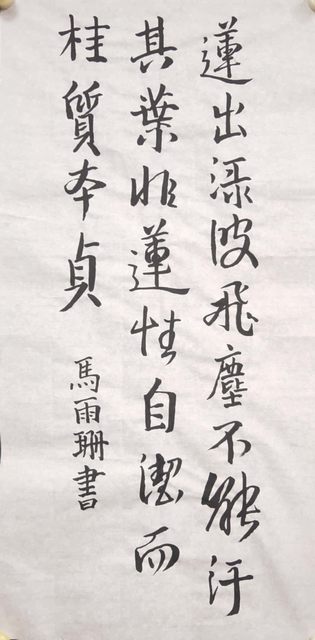 蓮出渌波飛塵不能汙
其葉非蓮性自潔而
桂質本貞
馬雨珊書